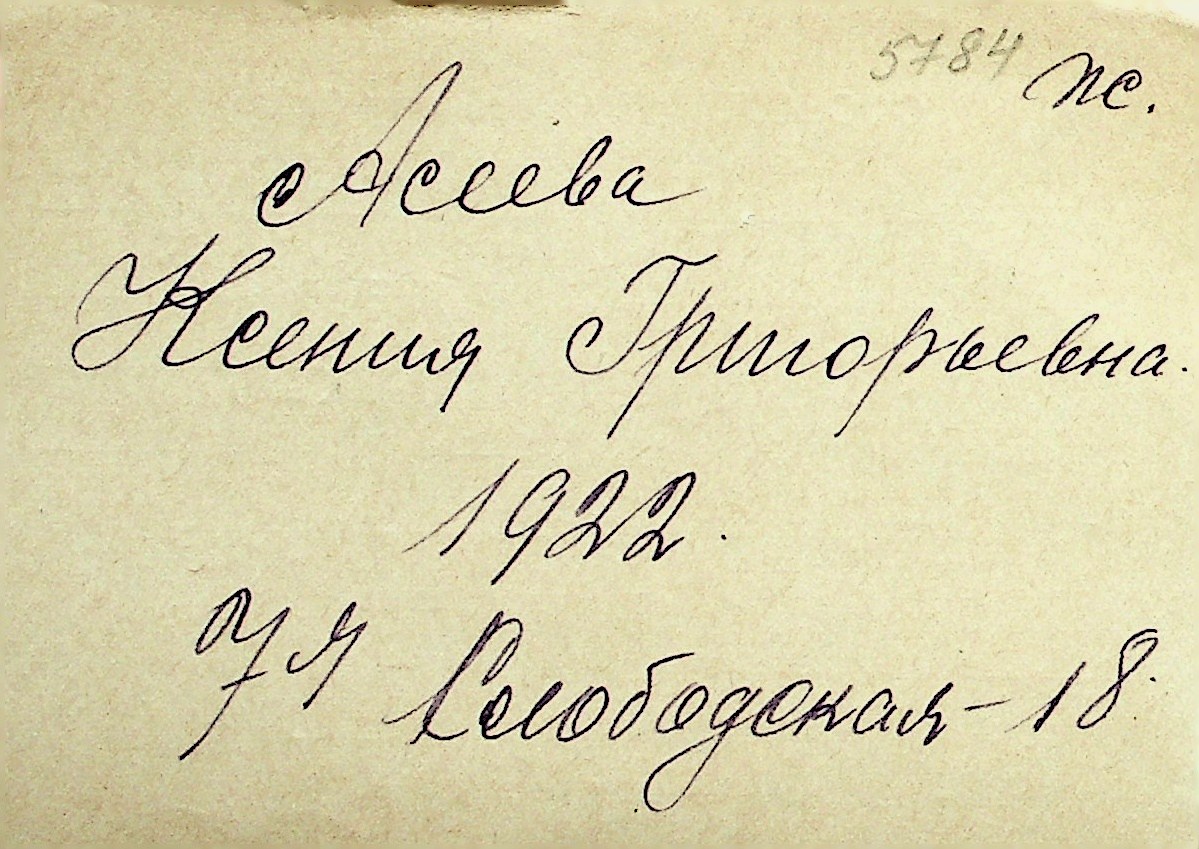 5784 ж.
Асеева
Ксения Григорьевна.
1922.
7я Слободская-18.